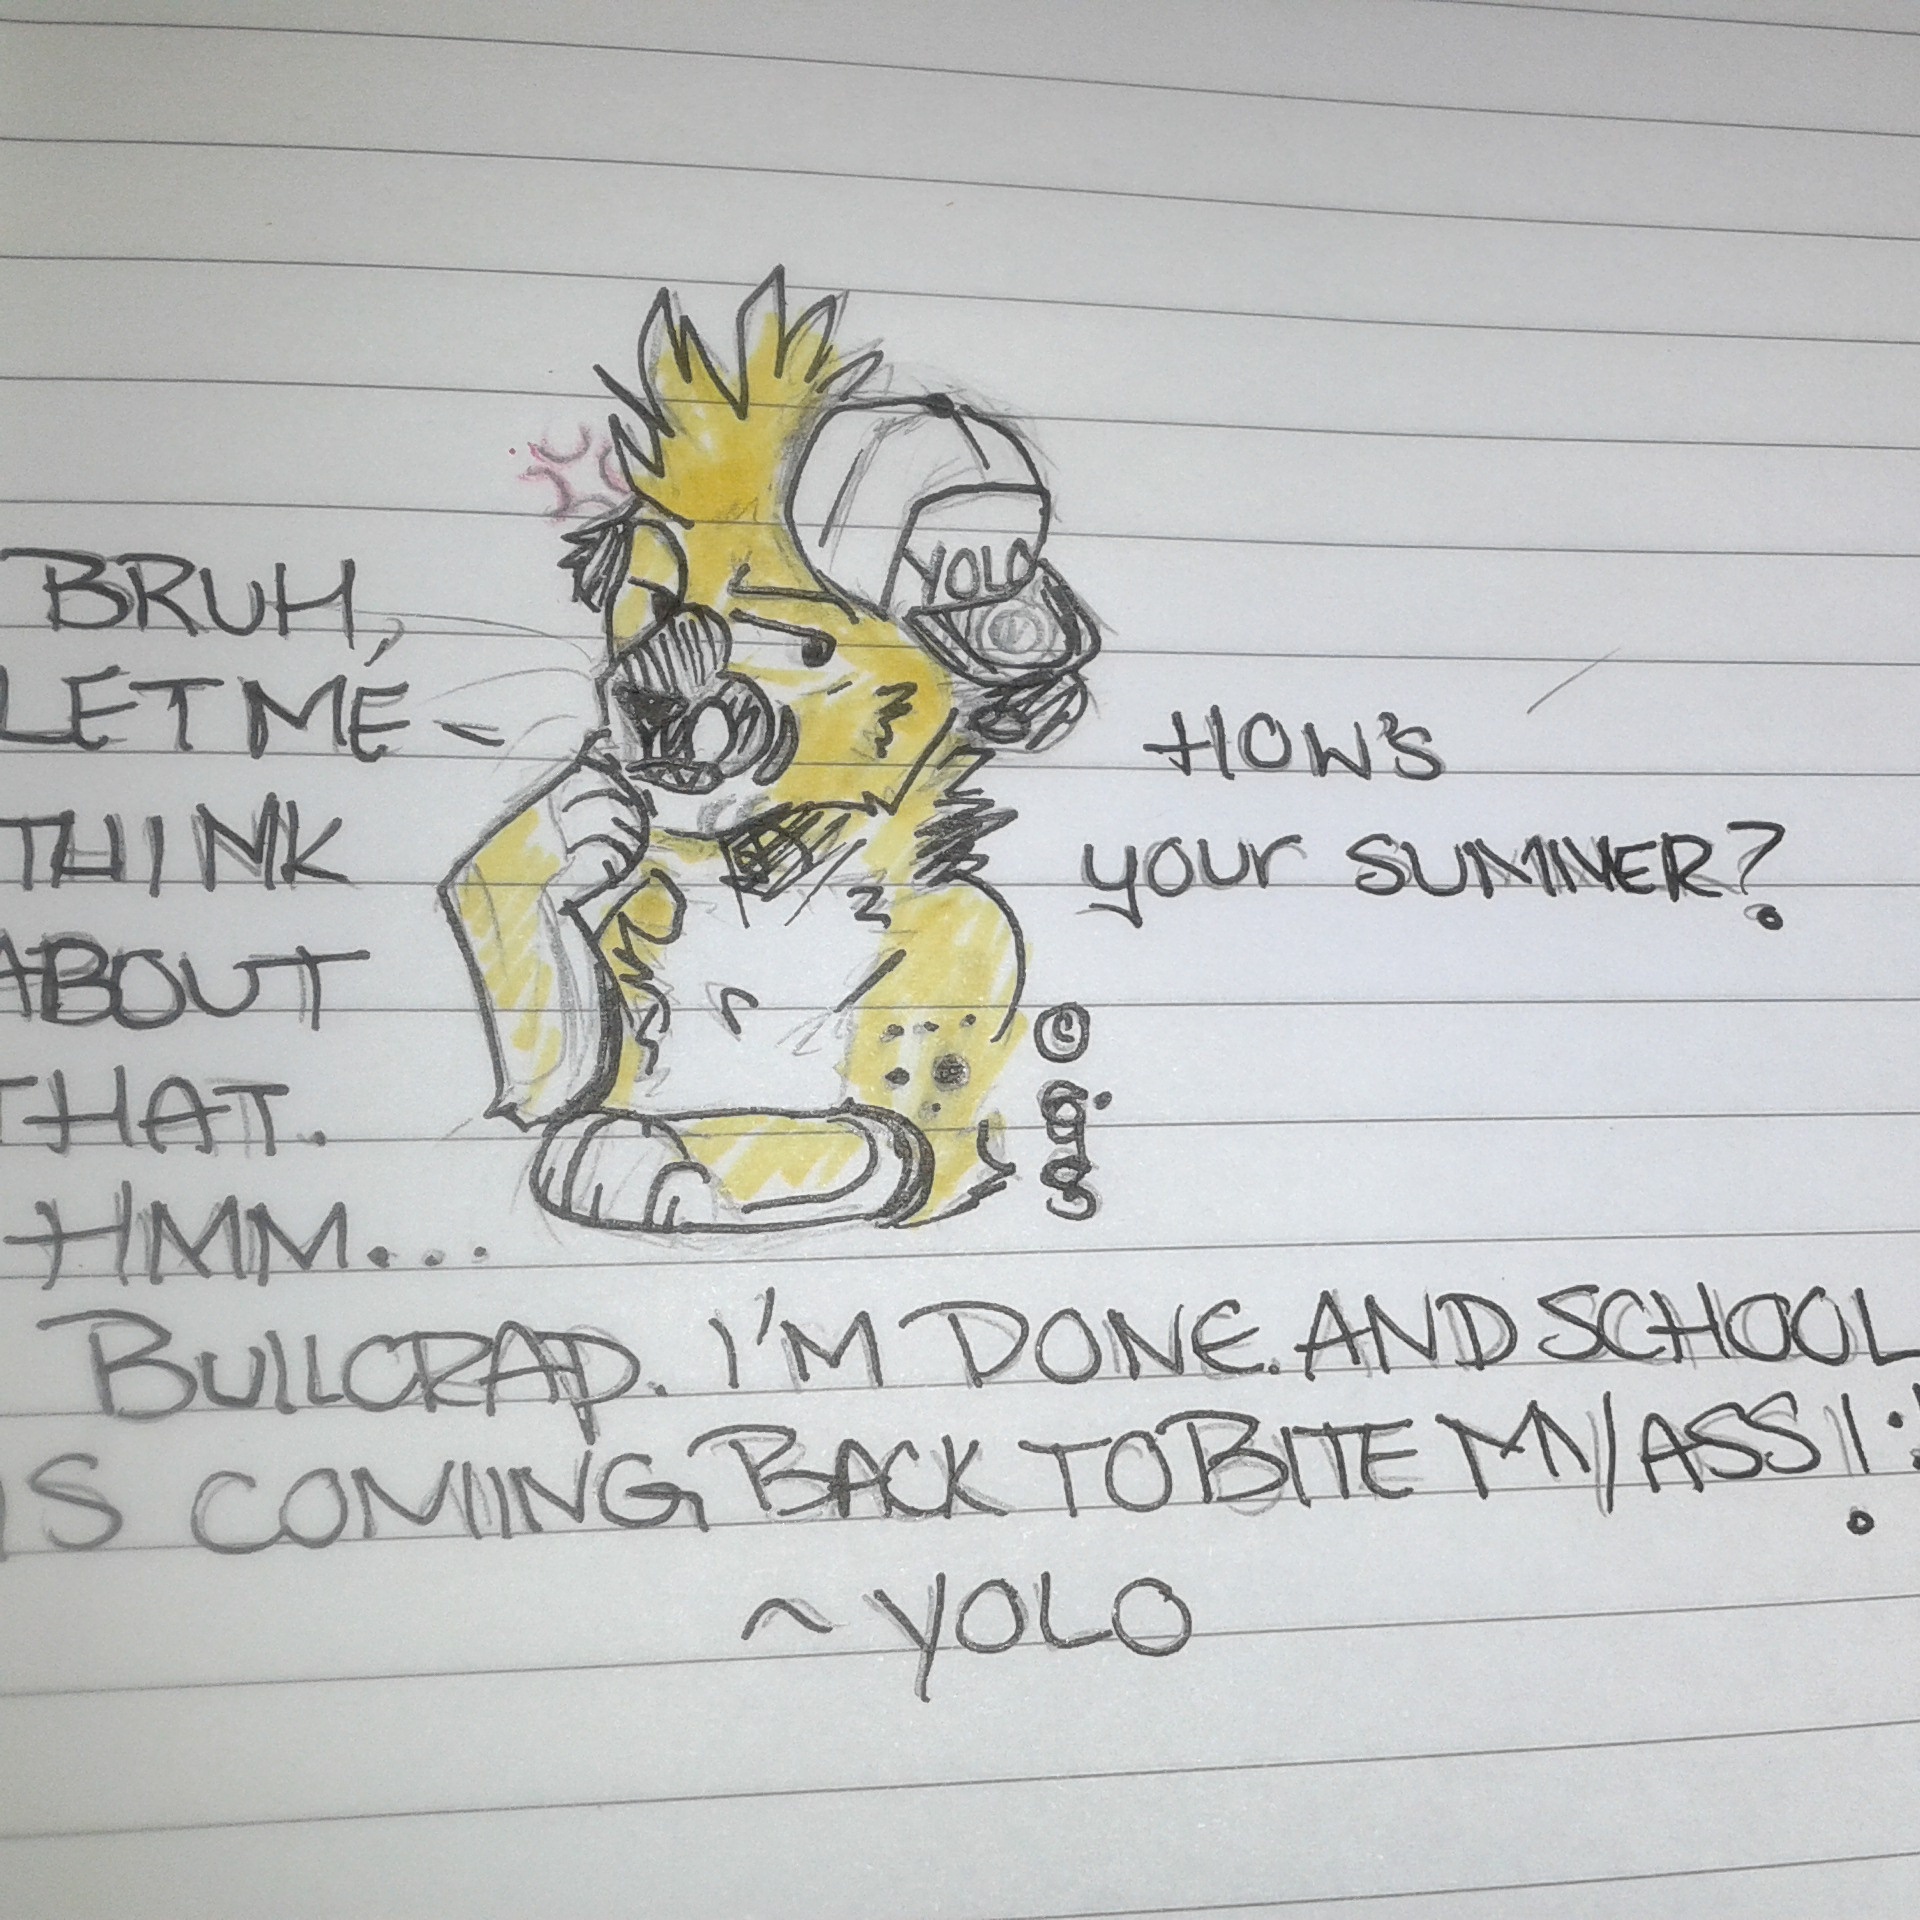 BRUH,
LET ME
THINK
ABOUT
THAT.
HMM...
YOLO
HOW'S
your SUMMER?
BULLCRAP. I'M DONE. AND SCHOOL
IS COMIING BACK TO BITE MY ASS!!
~YOLO